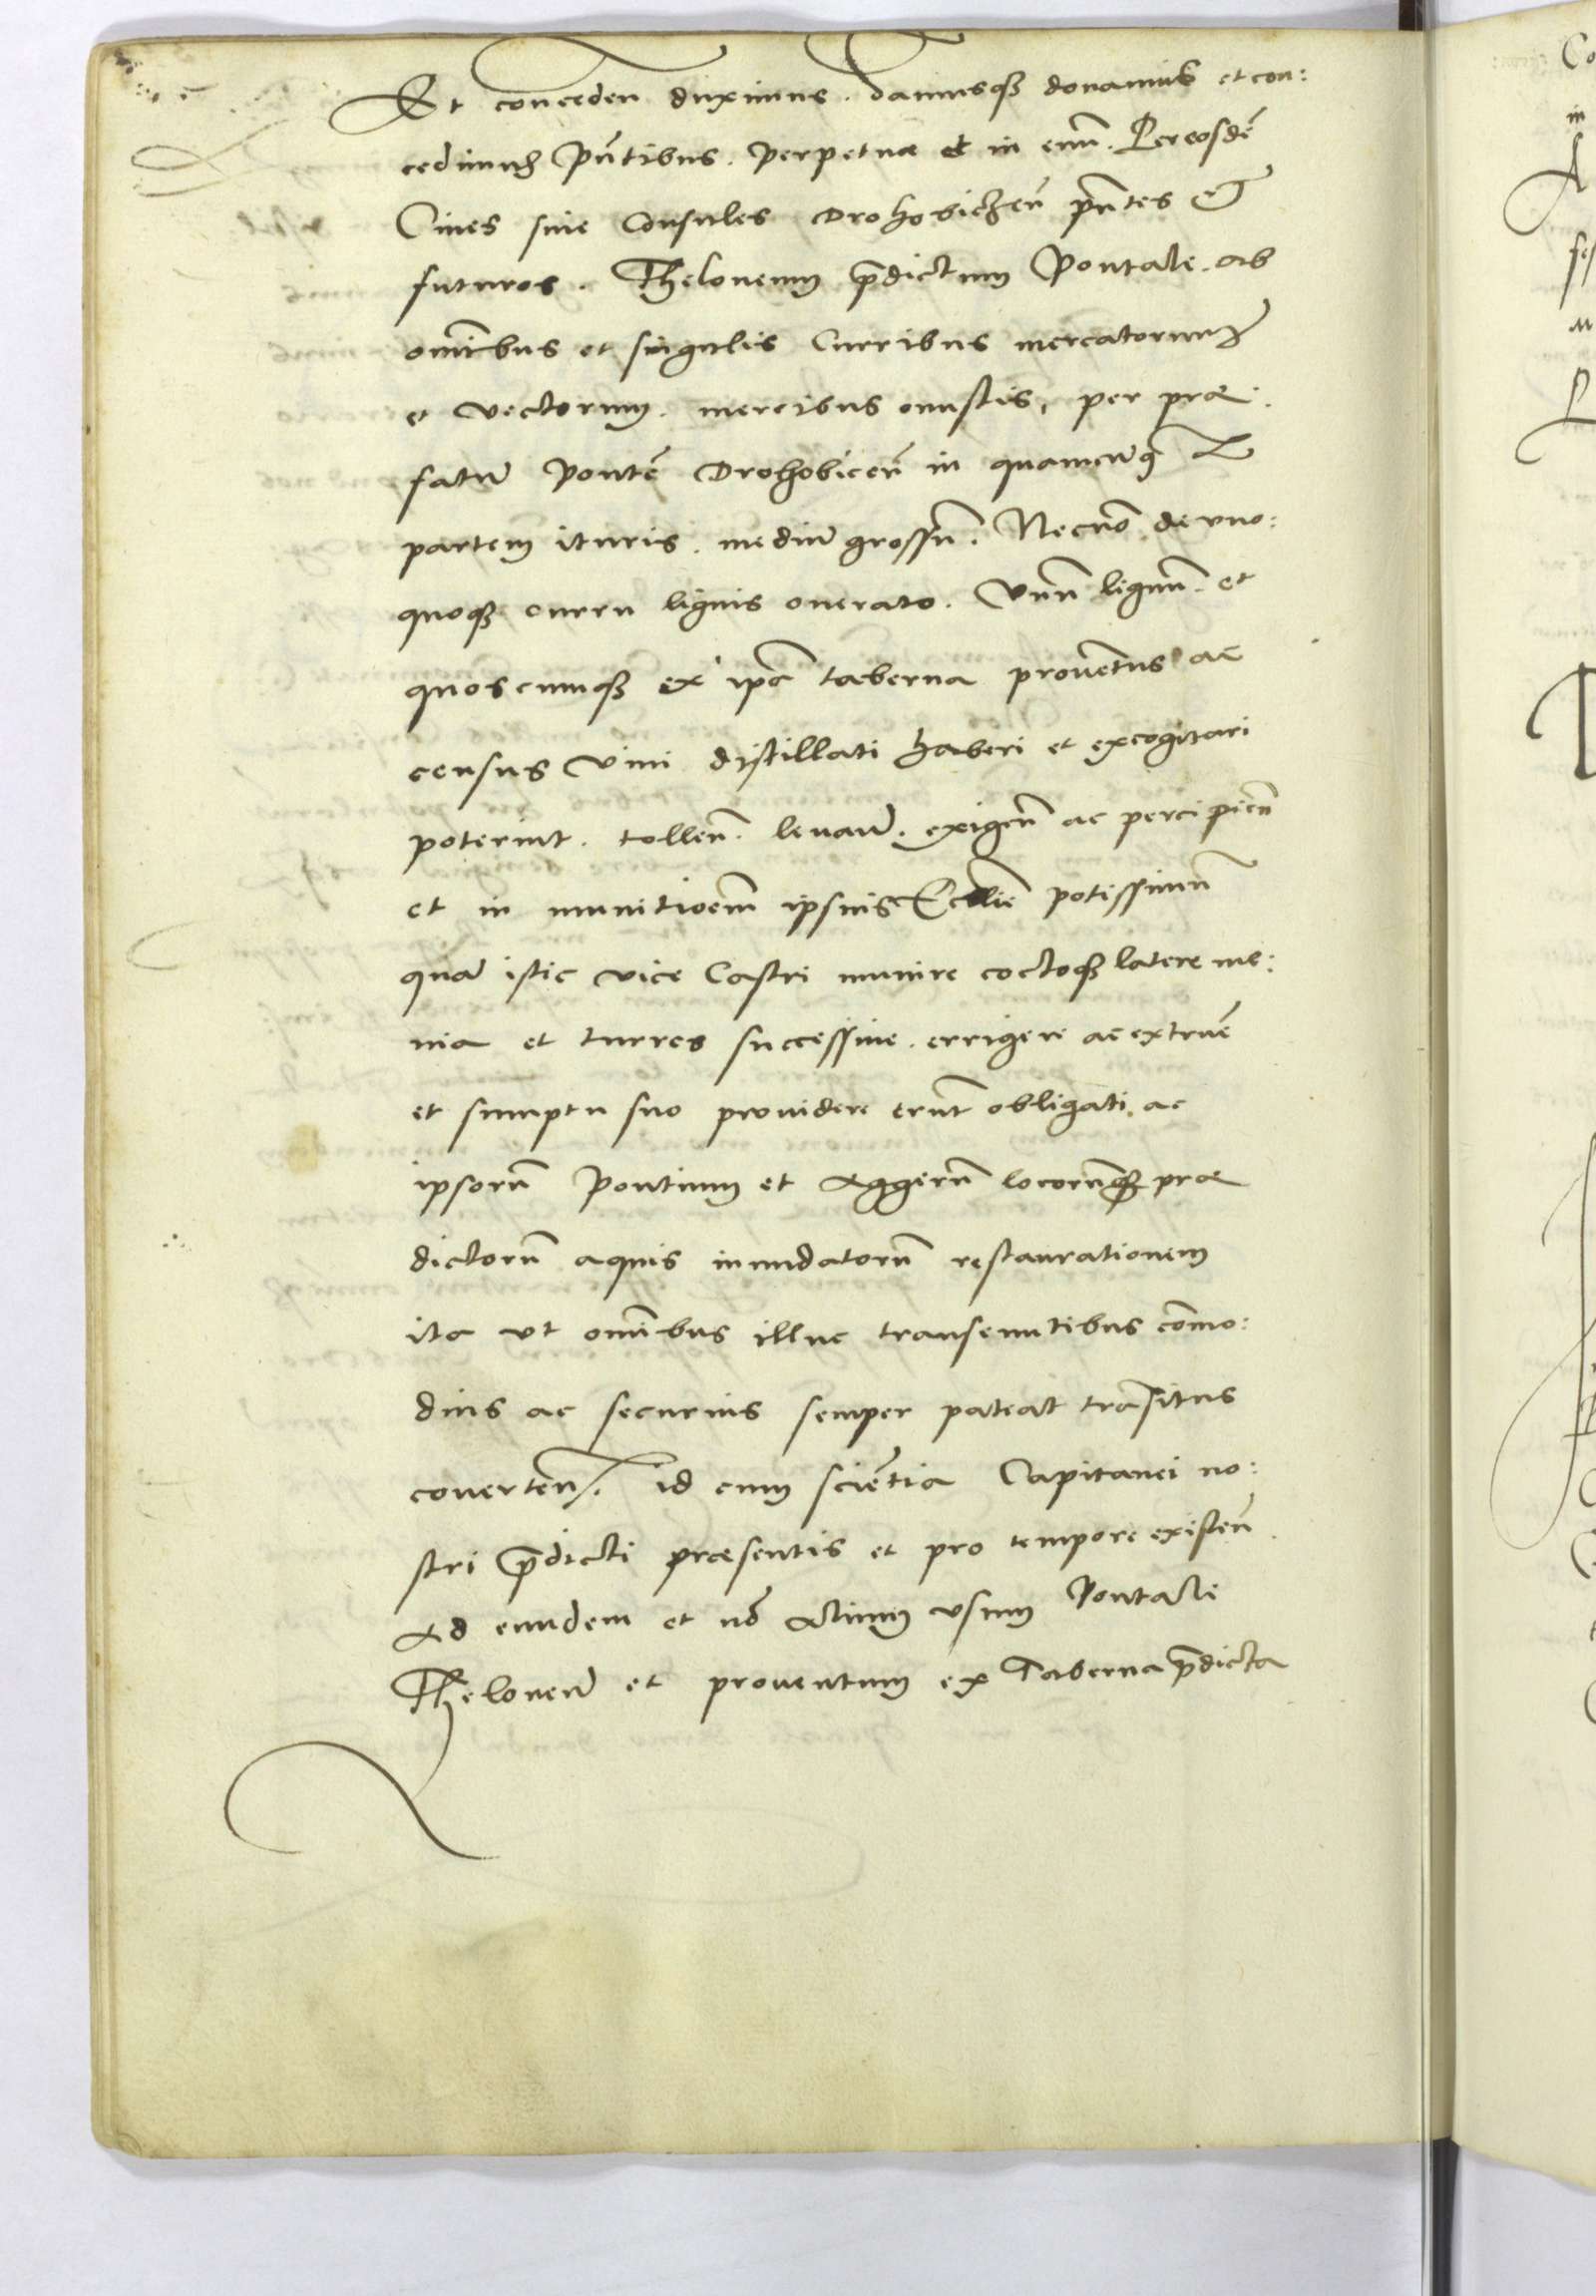 Et conceden̄ duximus. damusqꝫ donamus et con:
cedimus p̄ntibus. perpetuæ et in euū. Per eosdē
Ciues siue Consules Drohobiczen̄ p̄ntes et
futuros. Theloneum p̄dictum Pontale. ab
om̄ibus et singulis Curribus mercatorum
et vectorum. mercibus onustis, per præ:
fatū pontē Drohobicen̄ in quamcūqꝫ
partem ituris. mediū grossū. Necnō de vno:
quoqꝫ curru lignis onerato. Vnū lignū. et
quoscumqꝫ ex ip̄a taberna prouētus ac
census Vini distillati haberi et excogitari
poterint. tollen̄. leuan̄. exigen̄ ac percipien̄
et in munitioem̄ ipsius Eccl̄ie potissimū
quā istic vice Castri munire coctoqꝫ latere me:
nia et turres successiue. errigere ac extruē
et sumptu suo prouidere erūt obligati. ac
ipsorū pontium et Aggerū locorūqꝫ præ
dictorū aquis inundatorū restaurationem
ita vt om̄ibus illuc transeuntibus cōmo:
dius ac securius semper pateat trāsitus
cōuerten̄. id cum sciētia Capitanei no:
stri p̄dicti præsentis et pro tempore existen̄
Ad eundem et nō Alium vsum Pontale
Theloneū et prouentum ex Taberna p̄dicta